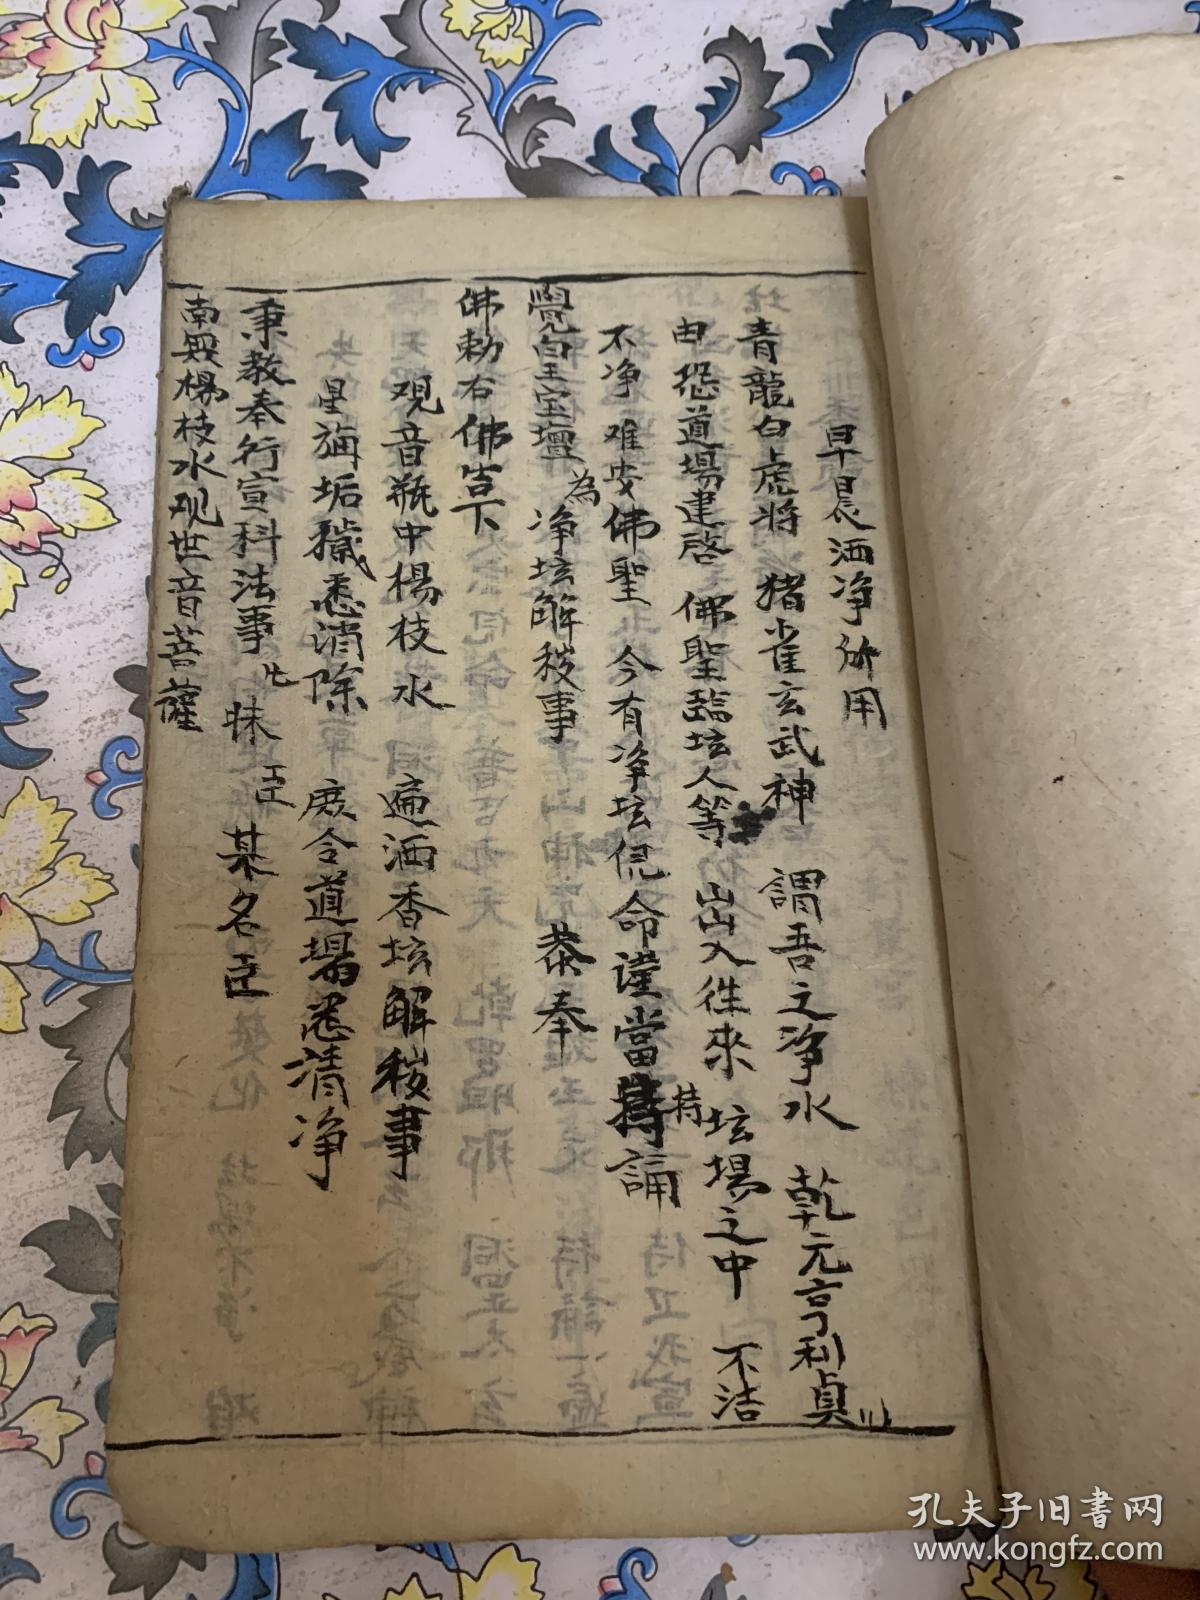 早晨洒净所用
青龍白虎將 猪雀玄武神 謂吾之净水 乾元亨利貞
由恐道場建啓 佛聖臨坛人等 出入往來 坛場之中 不洁
不净 难安佛聖 今有净坛 命謹當持誦
持
覺皇宝壇 為净坛解秽事 恭奉
佛勅右佛告下
观音瓶中楊枝水 遍洒香坛解秽事
星旃垢穢悉消除 庶令道場悉清净
秉教奉行宣科法事 昧臣 某名臣
南無楊枝水观世音菩薩
孔夫子旧书网
www.kongfz.com